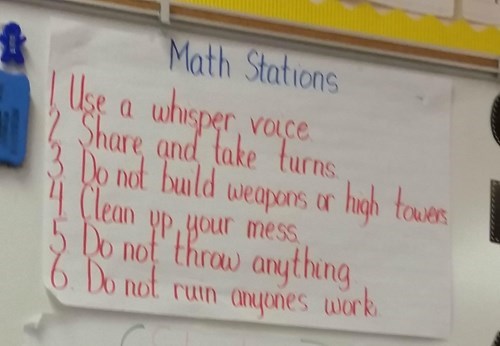 Math Stations
1 Use a whisper voice.
2 Share and take turns.
3 Do not build weapons or high towers
4 Clean up your mess.
5 Do not throw anything
6. Do not ruin anyones work.